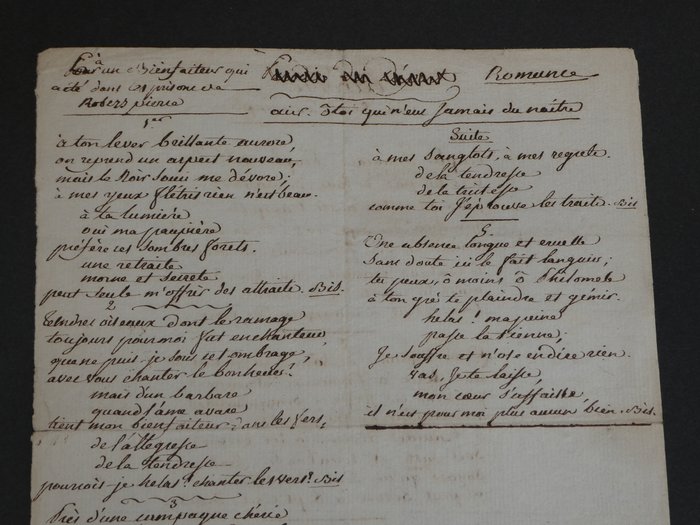 à
un Bienfaiteur qui
a été dans les prisons de
Robers pierre
Romance
air. Toi qui n'eus jamais du naître
1er
à ton lever brillante aurore,
on reprend un aspect nouveau,
mais le noir souci me dévore;
à mes yeux flétris rien n'est beau.
à la lumière
oui ma paupière
préfère ces sombres forets.
une retraite
morne et secrete
peut seule m'offrir des attraits. Bis.
2
tendres oiseaux dont le ramage
toujours pour moi fut enchanteur,
que ne puis-je sous cet ombrage,
avec vous chanter le bonheur?
mais d'un barbare
quand l'âme avare
tient mon bienfaiteur dans les fers,
de l'allegresse
de la tendresse
pourrois-je helas! chanter les vers? Bis
3
Près d'une compagne chérie
Suite
à mes sanglots, à mes regrets.
de la tendresse
de la tristesse
comme toi J'éprouve les traits. Bis
5
Une absence longue et cruelle
sans doute ici le fait languir;
tu peux, ô moins ô Philomele
à ton gré te plaindre et gémir.
helas! ma peine
passe la tienne;
Je souffre et n'ose en dire rien.
vas, Je te laisse,
mon cœur s'affaisse,
il n'est pour moi plus aucun bien. Bis.